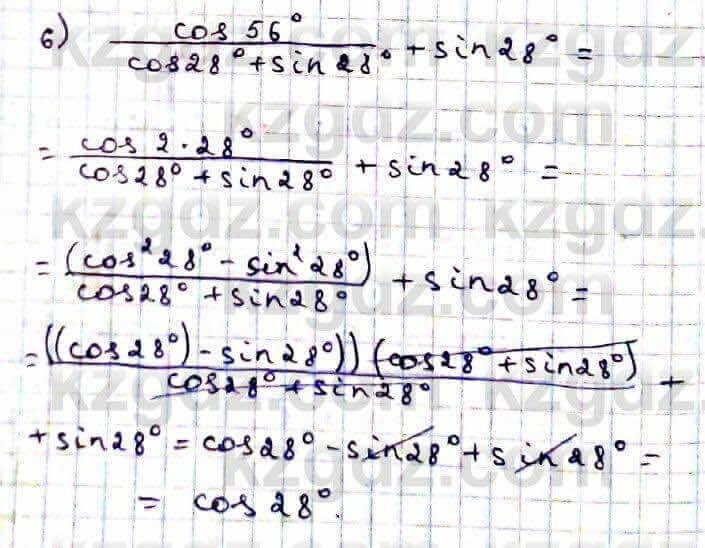 б) cos 56° / (cos28° + sin 28°) + sin28° =
= cos 2·28° / (cos28° + sin28°) + sin28° =
= (cos²28° - sin²28°) / (cos28° + sin28°) + sin28° =
= ((cos28°) - sin28°)) (cos28° + sin28°) / (cos28° + sin28°) +
+ sin28° = cos28° - sin28° + sin28° =
= cos28°.
kzgdz.com